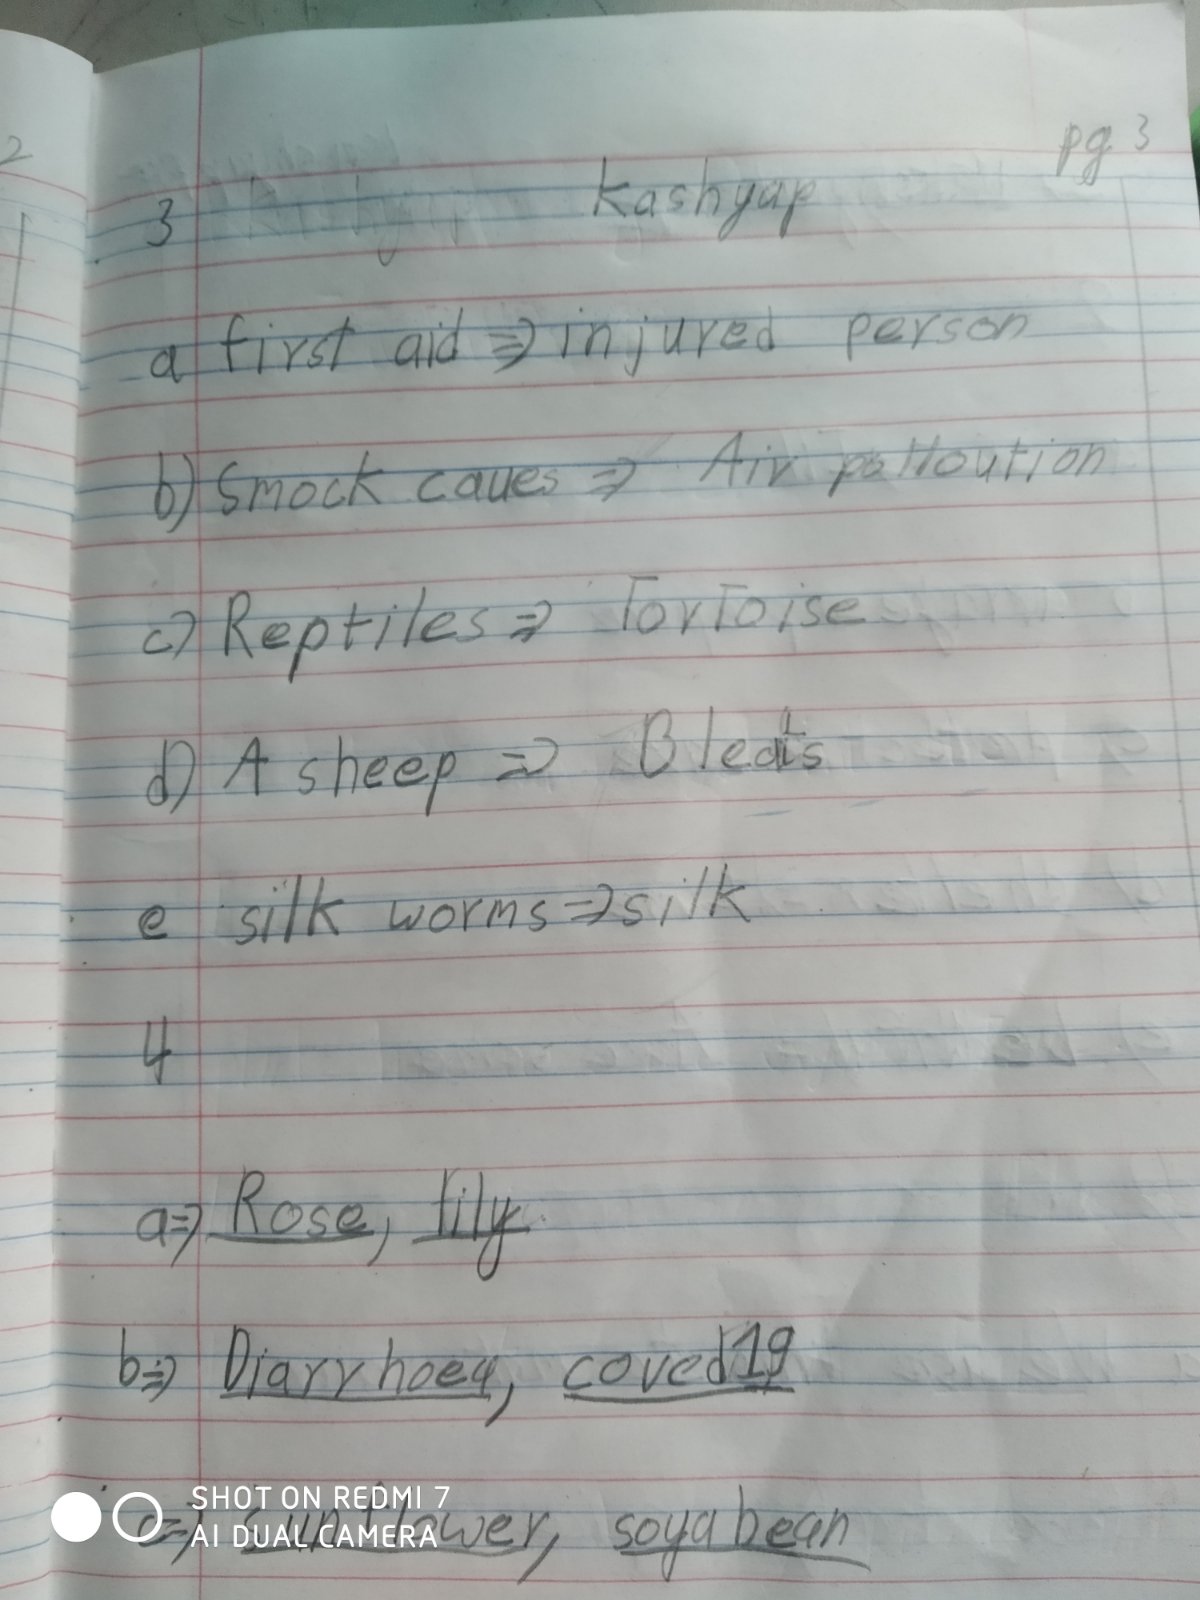 pg 3
2
3 Kashyap
a first aid ⇒ injured person
b) Smock caues ⇒ Air polloution
c) Reptiles ⇒ Tortoise
d) A sheep ⇒ Bleats
e silk worms ⇒ silk
4
a⇒ Rose, lily
b⇒ Diarrhoea, coved19
c⇒ sunflower, soyabean
SHOT ON REDMI 7
AI DUAL CAMERA